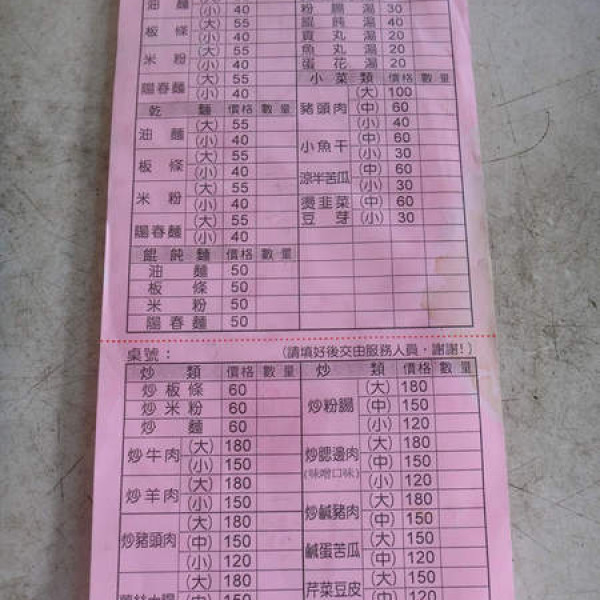 油麵 (大)
(小) 40
板條 (大) 55
(小) 40
米粉 (大) 55
(小) 40
陽春麵 (大) 55
(小) 40
乾麵 價格 數量
油麵 (大) 55
(小) 40
板條 (大) 55
(小) 40
米粉 (大) 55
(小) 40
陽春麵 (大) 55
(小) 40
餛飩麵 價格 數量
油麵 50
板條 50
米粉 50
陽春麵 50
粉腸湯 30
餛飩湯 40
貢丸湯 20
魚丸湯 20
蛋花湯 20
小菜類 價格 數量
豬頭肉 (大) 100
(中) 60
(小) 40
小魚干 (中) 60
(小) 30
涼半苦瓜 (中) 60
(小) 30
燙韭菜 (中) 60
豆芽 (小) 30
桌號： (請填好後交由服務人員，謝謝!)
炒類 價格 數量
炒板條 60
炒米粉 60
炒麵 60
炒牛肉 (大) 180
(小) 150
炒羊肉 (大) 180
(小) 150
炒豬頭肉 (大) 180
(中) 150
(小) 120
(大) 180
(中) 150
炒類 價格 數量
炒粉腸 (大) 180
(中) 150
(小) 120
炒腮邊肉 (大) 180
(味噌口味) (中) 150
(小) 120
炒鹹豬肉 (大) 180
(中) 150
鹹蛋苦瓜 (大) 150
(中) 120
芹菜豆皮 (大) 150
(中) 120